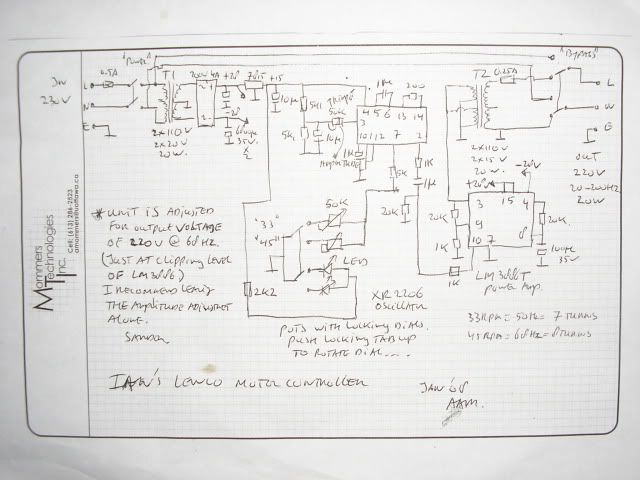 "POWER"
"BYPASS"
IN
230V
L
N
E
0.5A
T1
2x110V
2x20V
20W.
200V 4A
+28
-28
6800µF
35V.
x2
7815
+15
10µ
5K1
5K1
50K
10µ
1µ
AMPLITUDE
1µ
4 5 6 13 14
3
10 11 12 7 2
200
5K
1K
1µ
20K
XR2206
OSCILLATOR
"33"
"45"
50K
LED
2K2
POTS WITH LOCKING DIALS.
PUSH LOCKING TAB UP
TO ROTATE DIAL....
T2
0.25A
2x110V
2x15V
20W.
+28V
-28V
3 15 4
9
10 7 8
20K
1K
1K
20K
100µF
35V
LM3886T
POWER AMP.
L
N
E
OUT
220V
20-200HZ
20W
33RPM = 50HZ = 7 TURNS
45RPM = 68HZ = 8 TURNS
* UNIT IS ADJUSTED
FOR OUTPUT VOLTAGE
OF 220V @ 68HZ.
(JUST AT CLIPPING LEVEL
OF LM3886)
I RECOMMEND LEAVING
THE AMPLITUDE ADJUSTMENT
ALONE.
Mommers
Technologies
Inc.
Cell: (613) 286-2523
LENCO MOTOR CONTROLLER
JAN '08